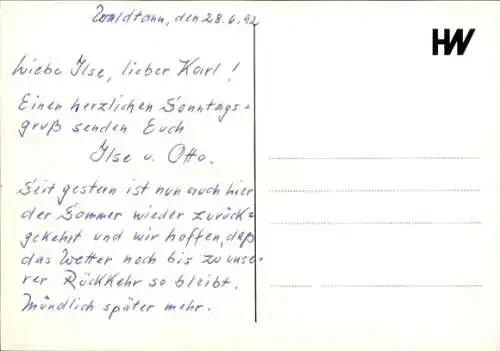 Waldtann, den 28.6.92
HW
Liebe Ilse, lieber Karl!
Einen herzlichen Sonntags=
gruß senden Euch
Ilse u. Otto.
Seit gestern ist nun auch hier
der Sommer wieder zurück=
gekehrt und wir hoffen, daß
das Wetter noch bis zu unse=
rer Rückkehr so bleibt.
Mündlich später mehr.